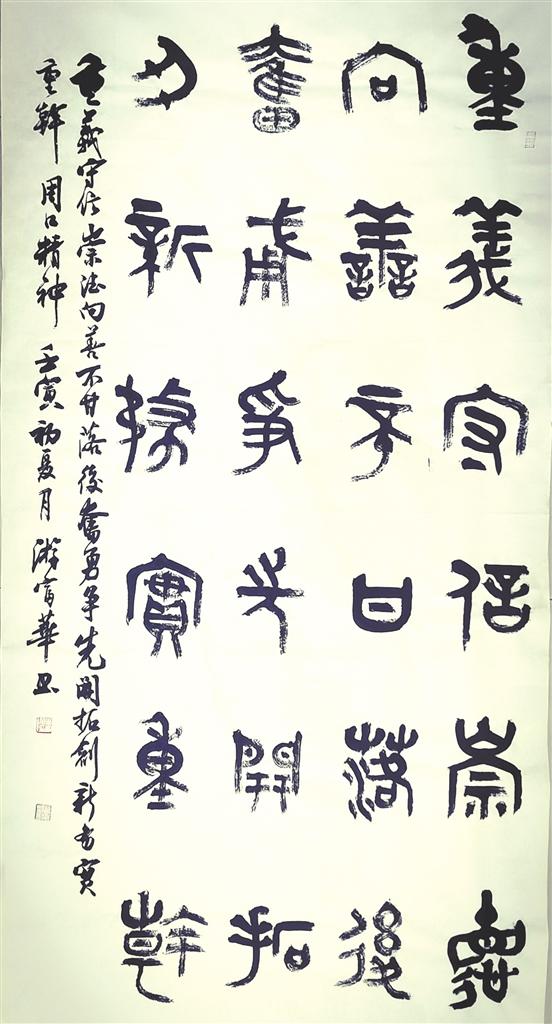 重義守信崇德
向善不甘落後
奮勇爭先開拓
刅新務實重幹
重義守信崇德向善不甘落後奮勇争先開拓創新務實
重幹 周口精神 壬寅初夏月 游富華書